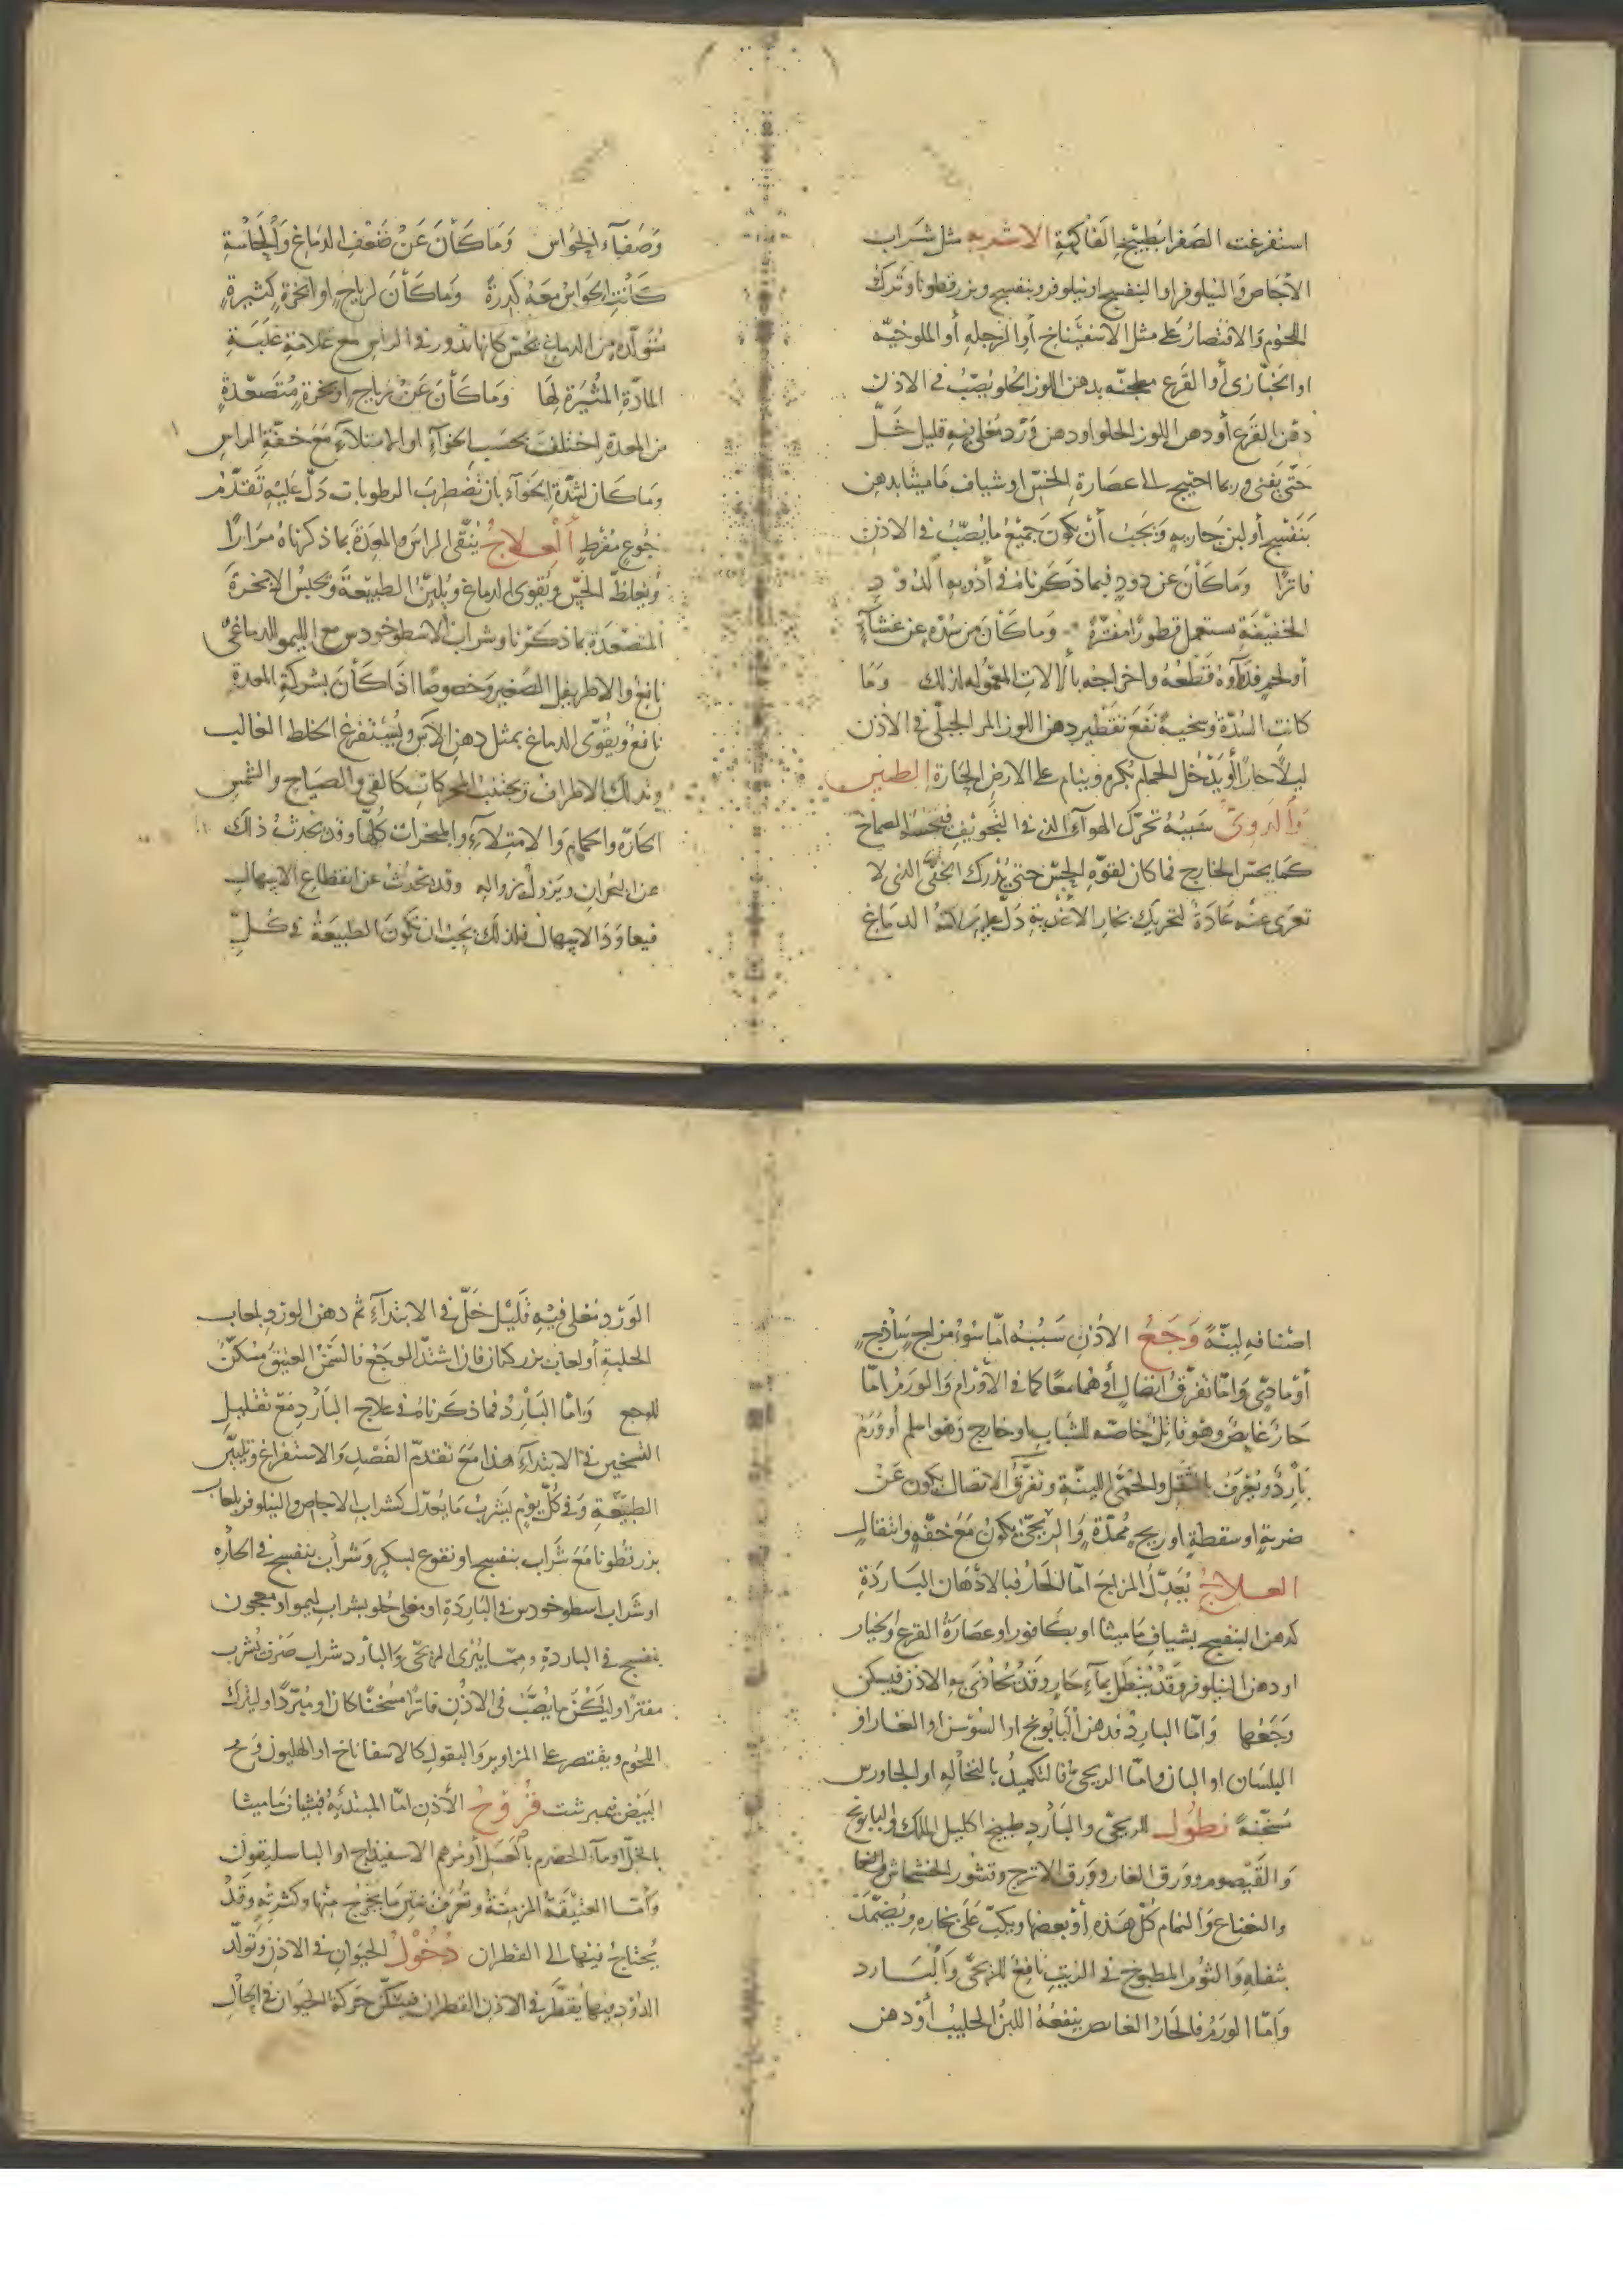 استفرغت الصفرا بطبيخ الفاكهة الاشربه مثل شراب
الاجاص والنيلوفر او البنفسج او نيلوفر وبنفسج وبزر قطونا وترك
اللحوم والاقتصار على مثل الاسفيناخ أو الرجله أو الملوخيّه
او الخبّازى أو القرع مطجنه بدهن اللوز الحلو يصبّ في الاذن
دهن القرع أو دهن اللوز الحلو او دهن ورد مغلى فيه قليل خلّ
حتّى يفنى وربما احتيج الى عصارة الخسّ او شياف ماميثا بدهن
بنفسج أو لبن جاريه ويجب أن يكون جميع ما يصبّ في الاذن
فاترًا وما كان عن دود فبما ذكرناه في أدوية الدود
الخفيفة يستعمل قطورًا مفترة وما كان من سدّه عن غشاء
أو لحم فدآوه قطعه واخراجه بالالات المعموله لذلك وما
كانت السدّة وسخية نفع تقطير دهن اللوز المر الجبلّى في الاذن
ليلاً حارًا أو يدخل الحمام بكره وينام على الارض الحارة الطنين
والدوىّ سببه تحرّك الهوآء الذى في التجويف فيحسه الصماخ
كما يحسّ الخارج فما كان لقوّه الحسّ حتى يدرك الخفّى الذى لا
تعرى عنه عادة لتحريك بخار الاغذية دلّ عليه سلامة الدماغ
وصفآء الحواس وما كان عن ضعف الدماغ والحاسة
كانت الحواس معه كدرة وما كان لرياح او ابخرة كثيرة
متولّده من الدماغ يحس كانها تدور في الراس مع علامة غلبة
المادّة المثيرة لها وما كان عن رياح او بخرة متصعّدة
من المعدة اختلف بحسب الخوآء او الامتلآء مع خفّة الراس
وما كان لشدّة الخوآء بان تضطرب الرطوبات دلّ عليه تقدّم
جوع مفرط العلاج ينقّى الراس والمعدة بما ذكرناه مرارًا
ويغلظ الحسّ ويقوى الدماغ ويليّن الطبيعة ويحبس الابخرة
المتصعّدة بما ذكرنا وشراب الاسطوخودس مع الليمو الدماغىّ
نافع والاطريفل الصغير وخصوصًا اذا كان بشركة المعدة
نافع ويقوّى الدماغ بمثل دهن الاس ويستفرغ الخلط الغالب
وتدلك الاطراف وتجتنب المحركات كالقي والصياح والشمس
الحارّه والحمام والامتلآء والمبخرات كلّها وقد يحدث ذلك
عن البحران ويزول بزواله وقد يحدث عن انقطاع الاسهال
فيعاود الاسهال فلذلك يجب ان تكون الطبيعة في كلّ
اصنافه لينّة وجع الاذن سببه امّا سوء مزاج ساذج
أو مادّى وامّا تفرّق اتصال أو هما معًا كما في الاورام والورم امّا
حار غايص وهو قاتل خاصّه للشباب او خارج وهو اسلم أو ورم
بارد ويعرف بالثقل والحمّى اللينة وتفرّق الاتصال يكون عن
ضربة او سقطة او ريح ممدّة والريحىّ يكون مع خفّه وانتقال
العلاج يعدّل المزاج امّا الحار فبالادهان الباردة
كدهن البنفسج بشياف ماميثا او بكافور او عصارة القرع والخيار
او دهن النيلوفر وقد ينطل بمآء حار وقد تحاذى به الاذن فيسكن
وجعها وامّا البارد فدهن البابونج او السوسن او الغار او
البلسان او البان وامّا الريحى فالتكميد بالنخاله او الجاورس
مسخّنة نطول للريحّى والبارد طبيخ اكليل الملك والبابونج
والقيصوم وورق الغار وورق الاترج وقشور الخشخاش
والنعناع والنمام كلّ هذه أو بعضها ويكبّ على بخاره ويضمّد
بثفله والثوم المطبوخ في الزيت نافع للريحّى والبارد
وامّا الورم فالحار الغايص ينفعه اللبن الحليب أو دهن
الورد مغلى فيه قليل خلّ في الابتدآء ثم دهن الورد ولعاب
الحلبة أو لعاب بزر كتان فان اشتدّ الوجع فالسمن العتيق مسكّن
للوجع وامّا البارد فما ذكرناه في علاج البارد مع تقليل
التسخين في الابتدآء هذا مع تقدّم الفصد والاستفراغ وتليين
الطبيعة وفي كلّ يوم يشرب ما يعدّل كشراب الاجاص والنيلوفر بلعاب
بزر قطونا مع شراب بنفسج او نقوع بسكر وشراب بنفسج في الحاره
او شراب اسطوخودس في الباردة او مغلى حلو بشراب ليمو او معجون
بنفسج في الباردة وممّا يبرى الريحّى والبارد شراب صرف يشرب
مفترًا وليكن ما يصبّ في الاذن فاترًا مسخنًا كان او مبرّدًا وليترك
اللحوم ويقتصر على المزاوير والبقول كالاسفاناخ او الهليون ومح
البيض نيمبرشت قروح الأذن امّا المبتدئة فبشياف ماميثا
بالخلّ او مآء الحصرم بالعسل أو مرهم الاسفيذاج او الباسليقون
وأمّا العتيقة المزمنة وتعرف من ما يخرج منها وكثرته وقد
يحتاج فيها الى القطران دخول الحيوان في الاذن وتولّد
الدود فيها يقطّر في الاذن القطران فيسكّن حركة الحيوان في الحال